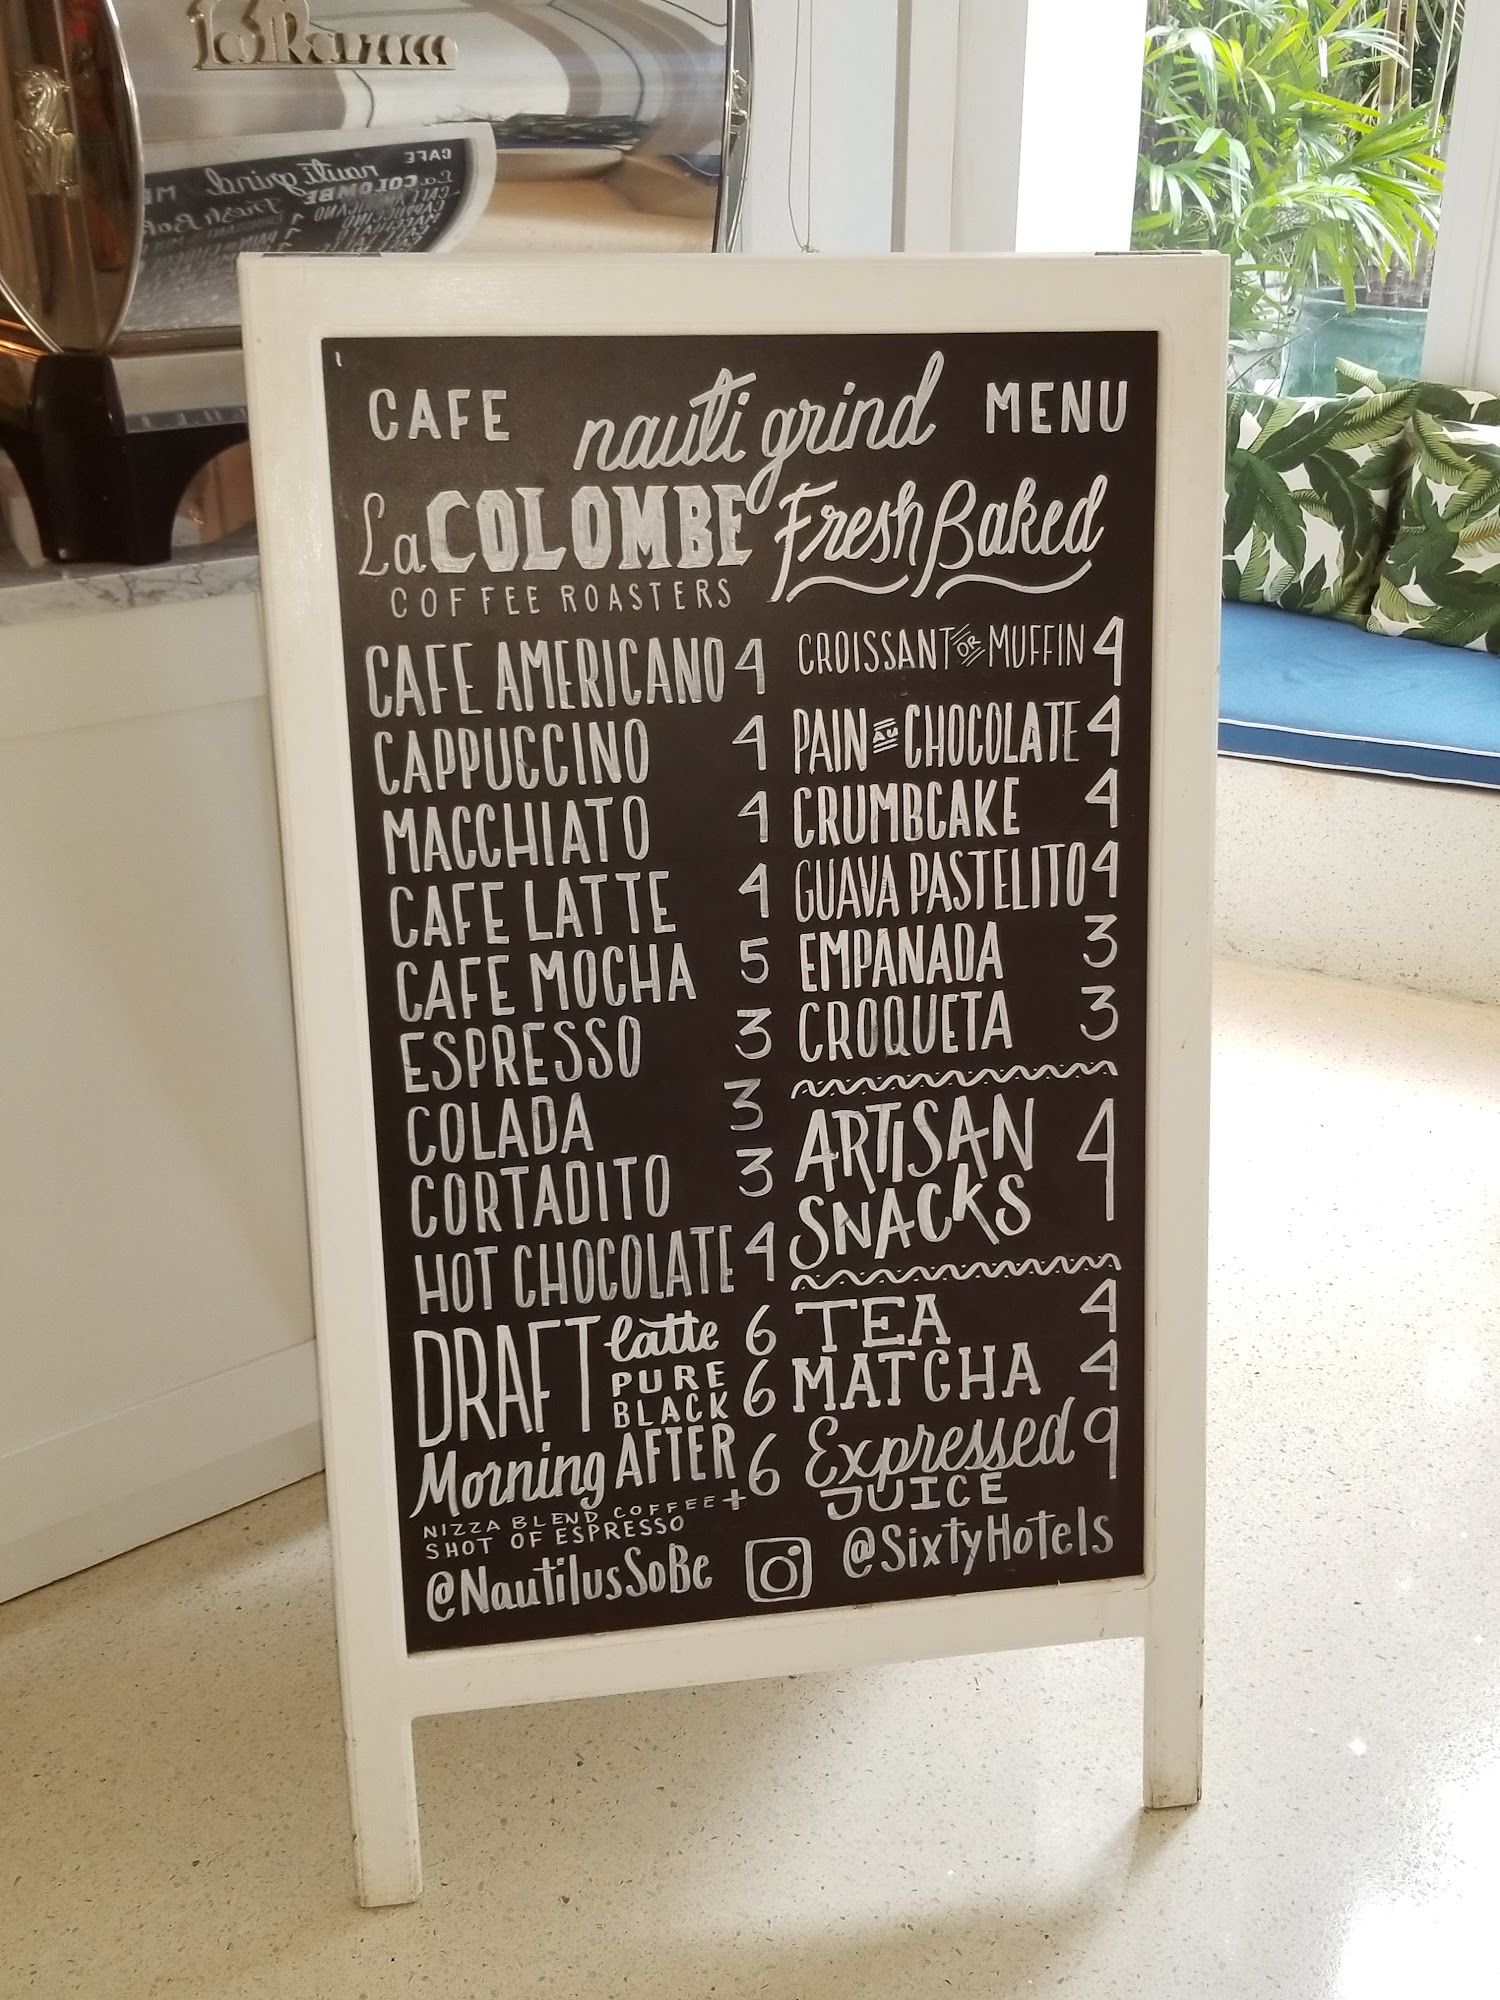 La Pavoni
CAFE nauti grind MENU
La COLOMBE
COFFEE ROASTERS
CAFE AMERICANO 4
CAPPUCCINO 4
MACCHIATO 4
CAFE LATTE 4
CAFE MOCHA 5
ESPRESSO 3
COLADA 3
CORTADITO 3
HOT CHOCOLATE 4
DRAFT latte 6
PURE BLACK 6
Morning AFTER 6
NIZZA BLEND COFFEE +
SHOT OF ESPRESSO
@NautilusSoBe
Fresh Baked
CROISSANT OR MUFFIN 4
PAIN AU CHOCOLATE 4
CRUMBCAKE 4
GUAVA PASTELITO 4
EMPANADA 3
CROQUETA 3
ARTISAN
SNACKS 4
TEA 4
MATCHA 4
Expressed 9
JUICE
@SixtyHotels